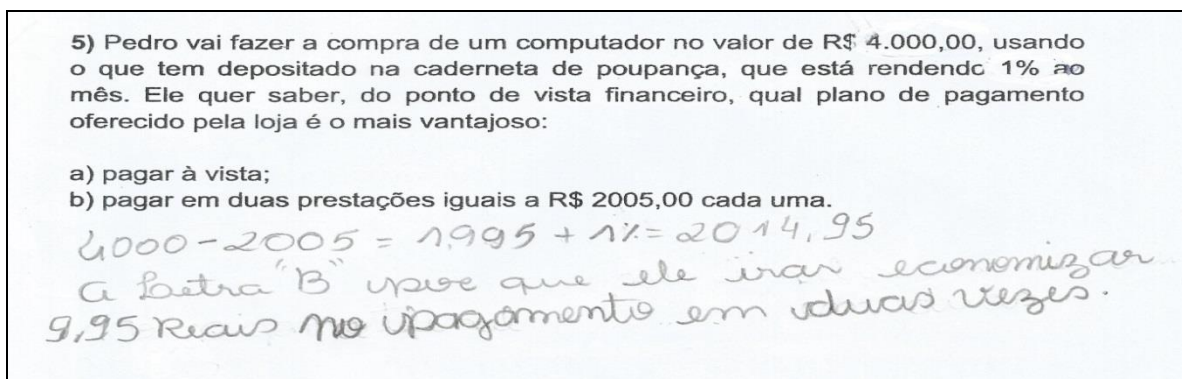 5) Pedro vai fazer a compra de um computador no valor de R$ 4.000,00, usando
o que tem depositado na caderneta de poupança, que está rendendo 1% ao
mês. Ele quer saber, do ponto de vista financeiro, qual plano de pagamento
oferecido pela loja é o mais vantajoso:
a) pagar à vista;
b) pagar em duas prestações iguais a R$ 2005,00 cada uma.
4000-2005 = 1,995 + 1% = 2014,95
a Letra "B" que ele irar economizar
9,95 Reais no pagamento em duas vezes.